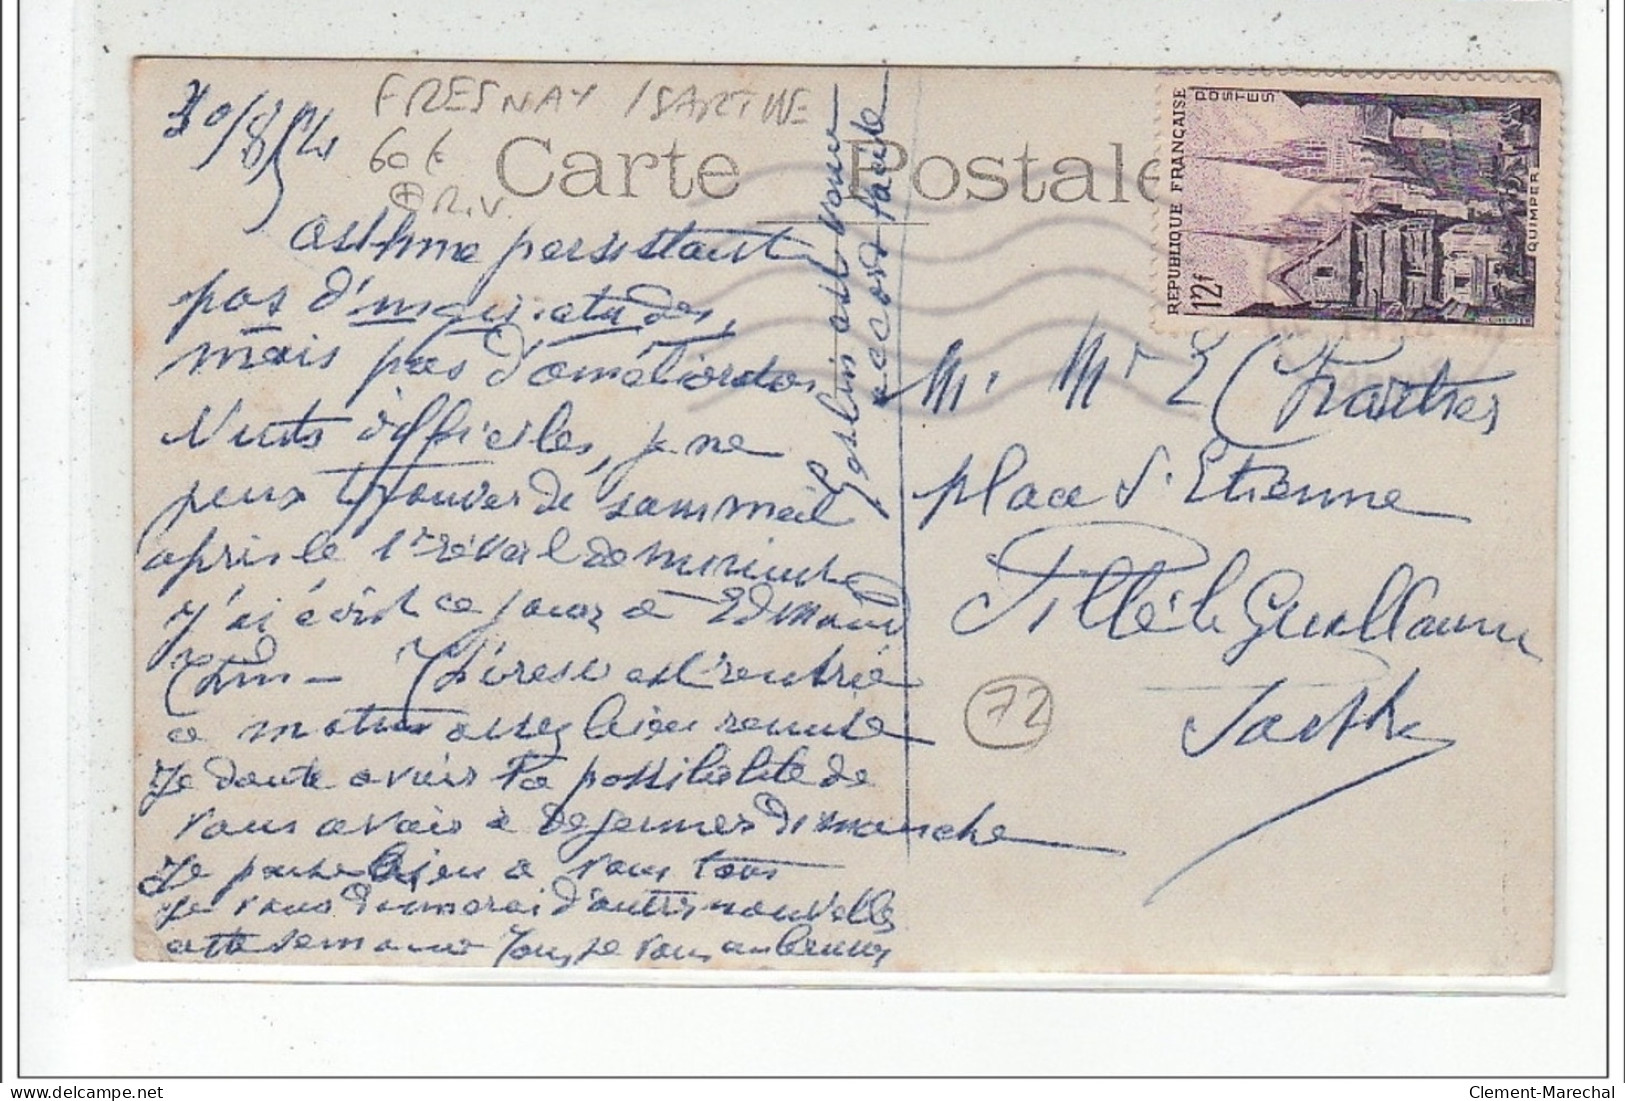 30/8/54
FRESNAY /SARTHE
60 €
R.V.
Carte Postale
REPUBLIQUE FRANÇAISE
POSTES
12f
QUIMPER
asthme persistant
pas d'inquiétudes,
mais pas d'amélioration
Nuits difficiles, je ne
peux trouver de sommeil
après le 1er réveil de minuit
J'ai écrit ce jour à Edmond
Thérèse est rentrée
à matin assez bien remise
Je doute avoir la possibilité de
vous avoir à déjeuner dimanche
Je pense bien à vous tous
Je vous donnerai d'autres nouvelles
cette semaine Tous je vous embrasse
Geslin est venu
accord facile
Mr Mr E Chartres
place St Etienne
Sillé le Guillaume
Sarthe
72
Clement-Marechal